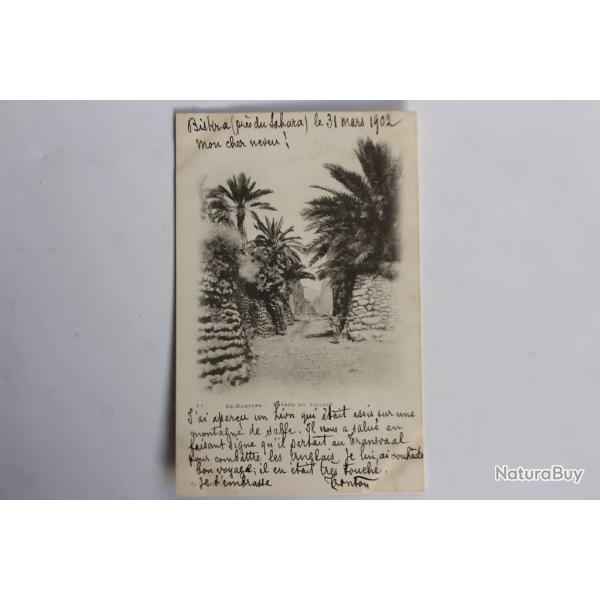 Biskra (près du Sahara) le 31 mars 1902
Mon cher neveu!
EL-KANTARA - ENTRÉE DU VILLAGE
J'ai aperçu un Lion qui était assis sur une
montagne de sable. Il nous a salué en
faisant signe qu'il partait au Transvaal
pour combattre les Anglais Je lui ai souhaité
bon voyage; il en était très touché.
Je t'embrasse
NaturaBuy